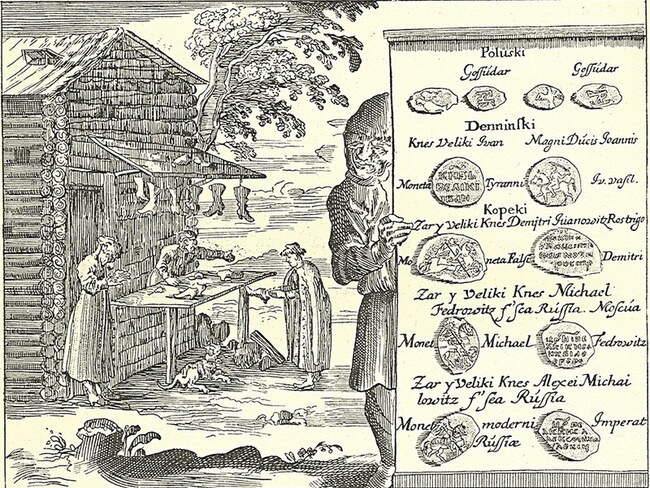 Poluski
Goſſúdar Goſſúdar
Denninſki
Knes Veliki Ivan Magni Dúcis Joannis
Moneta Tyranni Iv. vaſl.
Kopeki
Zar y Veliki Knes Demitri Juanowitz Rostrigo
Mo neta Falſa Demitri
Zar y Veliki Knes Michael
Fedrowitz f'sea Rúſſia. Moscúa
Monet Michael Fedrowitz
Zar y Veliki Knes Alexei Michai
lowitz f'sea Rúſſia
Monet moderni Imperat
Rúſſiæ